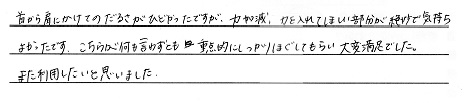 首から肩にかけてのだるさがひどかったですが、力加減、力を入れてほしい部分が絶妙で気持ち
よかったです。こちらが何も言わずとも重点的にしっかりほぐしてもらい大変満足でした。
また利用したいと思いました。